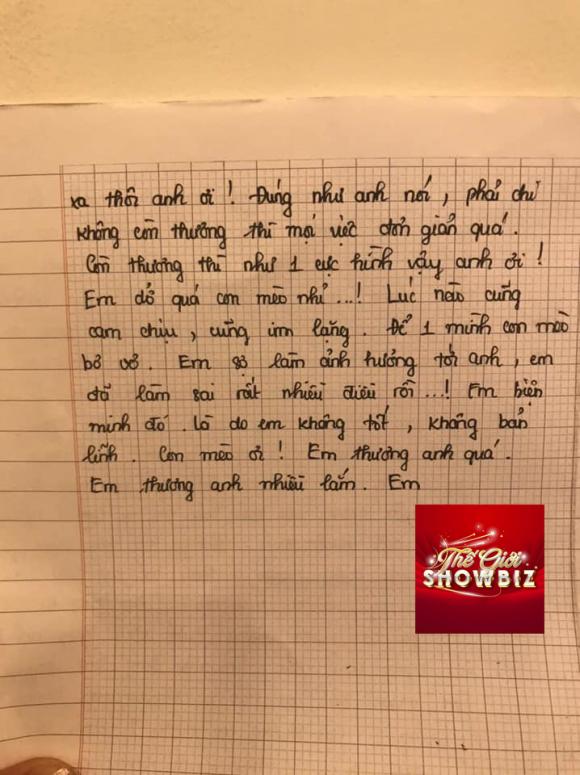 xa thôi anh ơi ! Đúng như anh nói , phải chi
không còn thương thì mọi việc đơn giản quá .
Còn thương thì như 1 cực hình vậy anh ơi !
Em dở quá con mèo nhỉ ...! Lúc nào cũng
cam chịu , cũng im lặng . Để 1 mình con mèo
bơ vơ . Em sợ làm ảnh hưởng tới anh , em
đã làm sai rất nhiều điều rồi ...! Em biện
minh đó . Là do em không tốt , không bản
lĩnh . Con mèo ơi ! Em thương anh quá .
Em thương anh nhiều lắm . Em
Thế Giới
SHOWBIZ